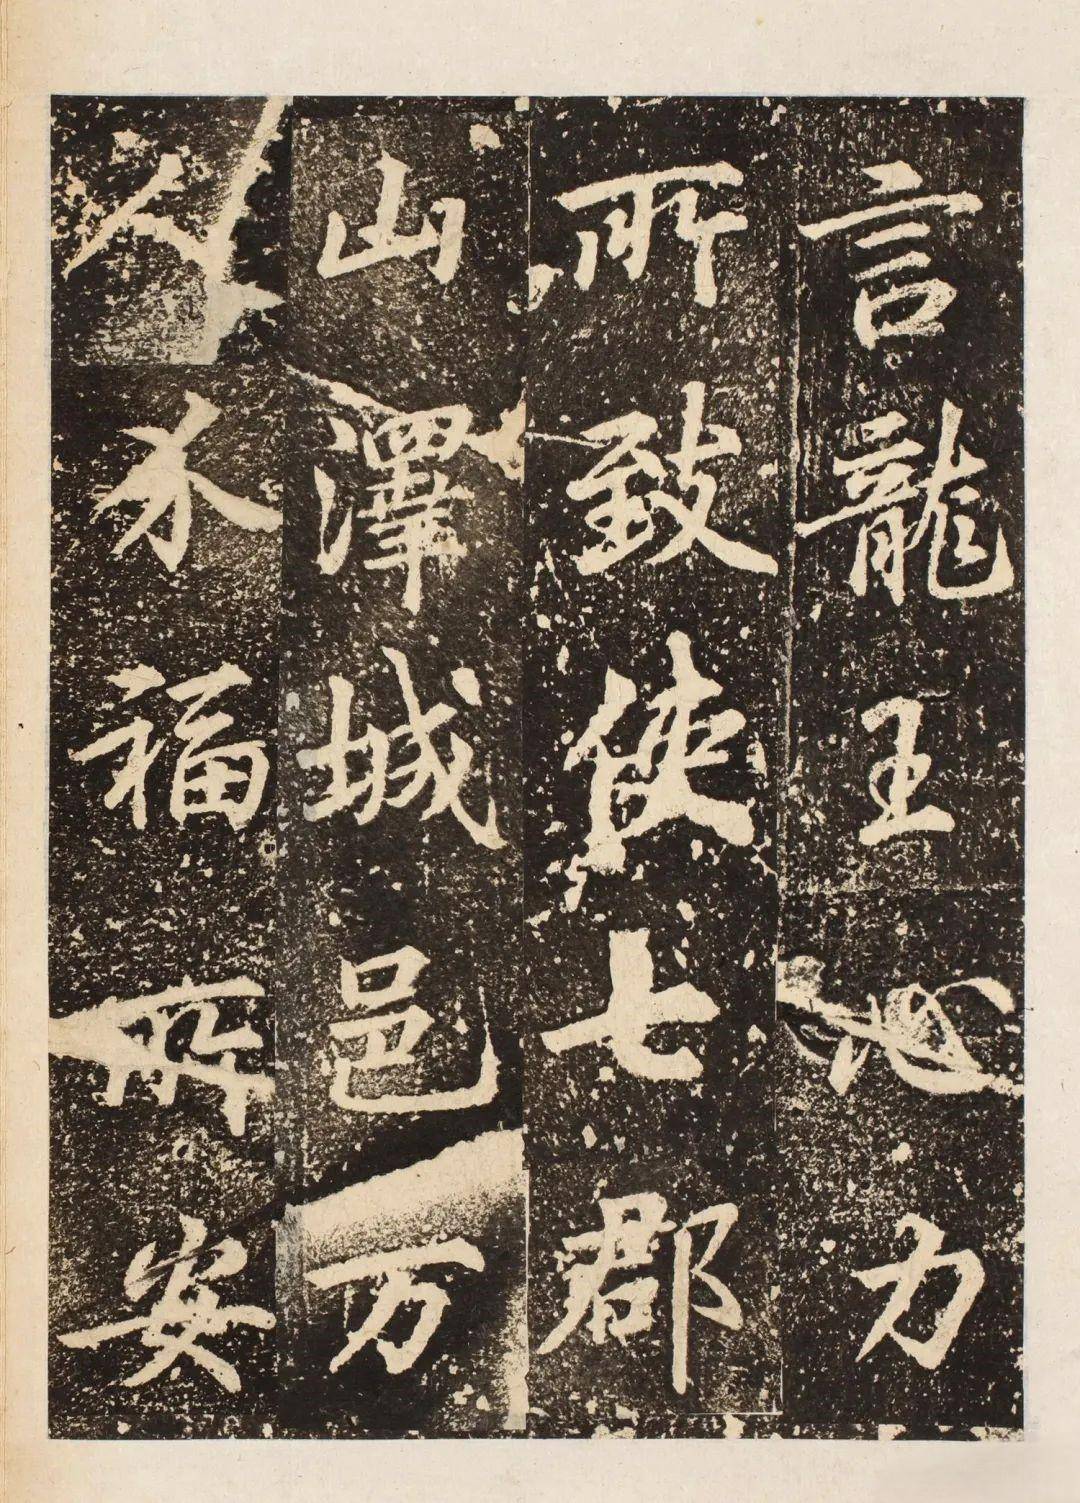 言龍王力
所致使七郡
山澤城邑万
人永福所安